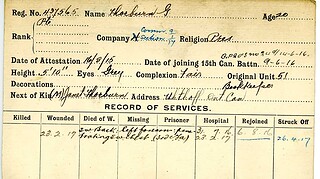 Reg. No. 437565 Name Thorburn G Age 20
Rank Pte Company Religion Pres
Date of Attestation 16/8/15 Date of joining 15th Can. Battn. 9-6-16
Height 5'10" Eyes Grey Complexion Fair Original Unit 51
Decorations Bookkeeper
Next of Kin (M) Janet Thorburn Address Uhthoff Ont Can
RECORD OF SERVICES.
Killed Wounded Died of W. Missing Prisoner Hospital Rejoined Struck Off
left forearm 3. 7. 16 6. 8. 16
23.2.17 chest 23.2.17 26.4.17